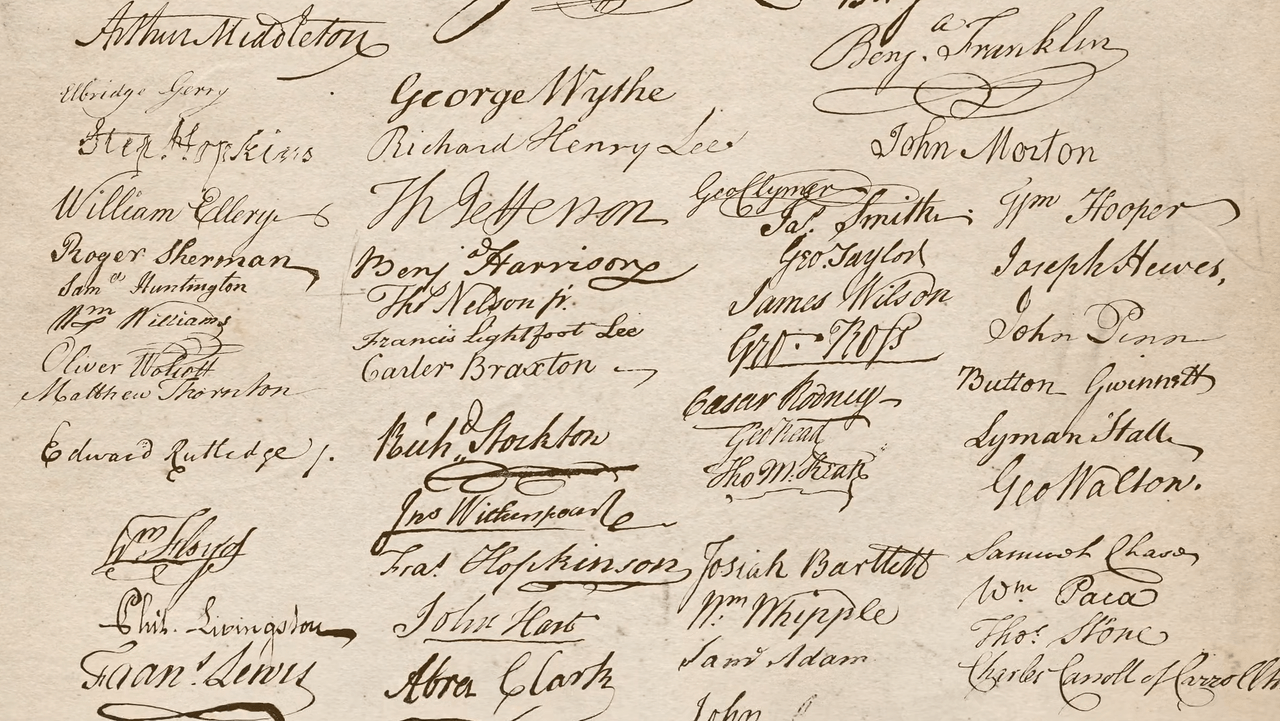 Arthur Middleton
Elbridge Gerry
Step. Hopkins
William Ellery
Roger Sherman
Sam'el Huntington
Wm Williams
Oliver Wolcott
Matthew Thornton
Edward Rutledge /.
Wm Floyd
Phil. Livingston
Frans. Lewis
George Wythe
Richard Henry Lee
Th Jefferson
Benj a Harrison
Thos Nelson jr.
Francis Lightfoot Lee
Carter Braxton
Richd. Stockton
Jno Witherspoon
Fras. Hopkinson
John Hart
Abra Clark
Benj. a Franklin
John Morton
Geo Clymer
Jas. Smith
Geo. Taylor
James Wilson
Geo. Ross
Caesar Rodney
Geo Read
Tho M:Kean
Josiah Bartlett
Wm Whipple
Saml Adam
John
Wm Hooper
Joseph Hewes,
John Penn
Button Gwinnett
Lyman Hall
Geo Walton.
Samuel Chase
Wm Paca
Thos. Stone
Charles Carroll of Carrollt